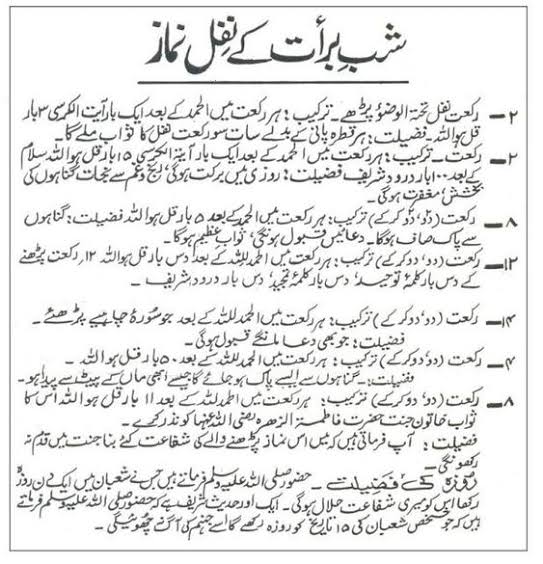 شبِ برأت کے نفل نماز
۲— رکعت نفل تحیۃ الوضوٗ پڑھے۔ ترکیب: ہر رکعت میں الحمد کے بعد ایک بار آیت الکرسی ۳ بار
قل ہو اللہ۔ فضیلت: ہر قطرہ پانی کے بدلے سات سو رکعت نفل کا ثواب ملے گا۔
۲— رکعت۔ ترکیب: ہر رکعت میں الحمد کے بعد ایک بار آیۃ الکرسی ۱۵ بار قل ہو اللہ سلام
کے بعد ۱۰۰ بار درود شریف فضیلت: روزی میں برکت ہوگی، رنج و غم سے نجات گناہوں کی
بخشش، مغفرت ہوگی۔
۸— رکعت (دو، دو کر کے) ترکیب: ہر رکعت میں الحمد کے بعد ۵ بار قل ہو اللہ فضیلت: گناہوں
سے پاک صاف ہوگا۔ دعائیں قبول ہونگی، ثوابِ عظیم ہوگا۔
۱۲— رکعت (دو، دو کر کے) ترکیب: ہر رکعت میں الحمد للہ کے بعد دس بار قل ہو اللہ ۱۲ رکعت پڑھنے
کے دس بار کلمۂ توحید، دس بار کلمۂ تمجید، دس بار درود شریف۔
۱۴— رکعت (دو، دو کر کے) ترکیب: ہر رکعت میں الحمد للہ کے بعد جو سورۃ چاہیے پڑھئے۔
فضیلت: جو بھی دعا مانگے قبول ہوگی۔
۴— رکعت (دو، دو کر کے) ترکیب: ہر رکعت میں الحمد للہ کے بعد ۵۰ بار قل ہو اللہ
فضیلت:۔ گناہوں سے ایسے پاک ہو جائے گا جیسے ابھی ماں کے پیٹ سے پیدا ہو۔
۸— رکعت (دو، دو کر کے) ترکیب: ہر رکعت میں الحمد للہ کے بعد ۱۱ بار قل ہو اللہ اس کا
ثواب خاتونِ جنت حضرت فاطمۃ الزہرہ رضی اللہ عنہا کو نذر کرے۔
فضیلت: آپ فرماتی ہیں کہ میں اس نماز پڑھنے والے کی شفاعت کئے بنا جنت میں قدم نہ
رکھونگی۔
روزہ کی فضیلت۔ حضور صلی اللہ علیہ وسلم فرماتے ہیں جس نے شعبان میں ایک دن روزہ
رکھا اس کو میری شفاعت حلال ہوگی۔ ایک اور حدیث شریف ہے کہ حضور صلی اللہ علیہ وسلم فرماتے
ہیں کہ جو شخص شعبان کی ۱۵ تاریخ کو روزہ رکھے گا اسے جہنم کی آگ نہ چھوئیگی۔